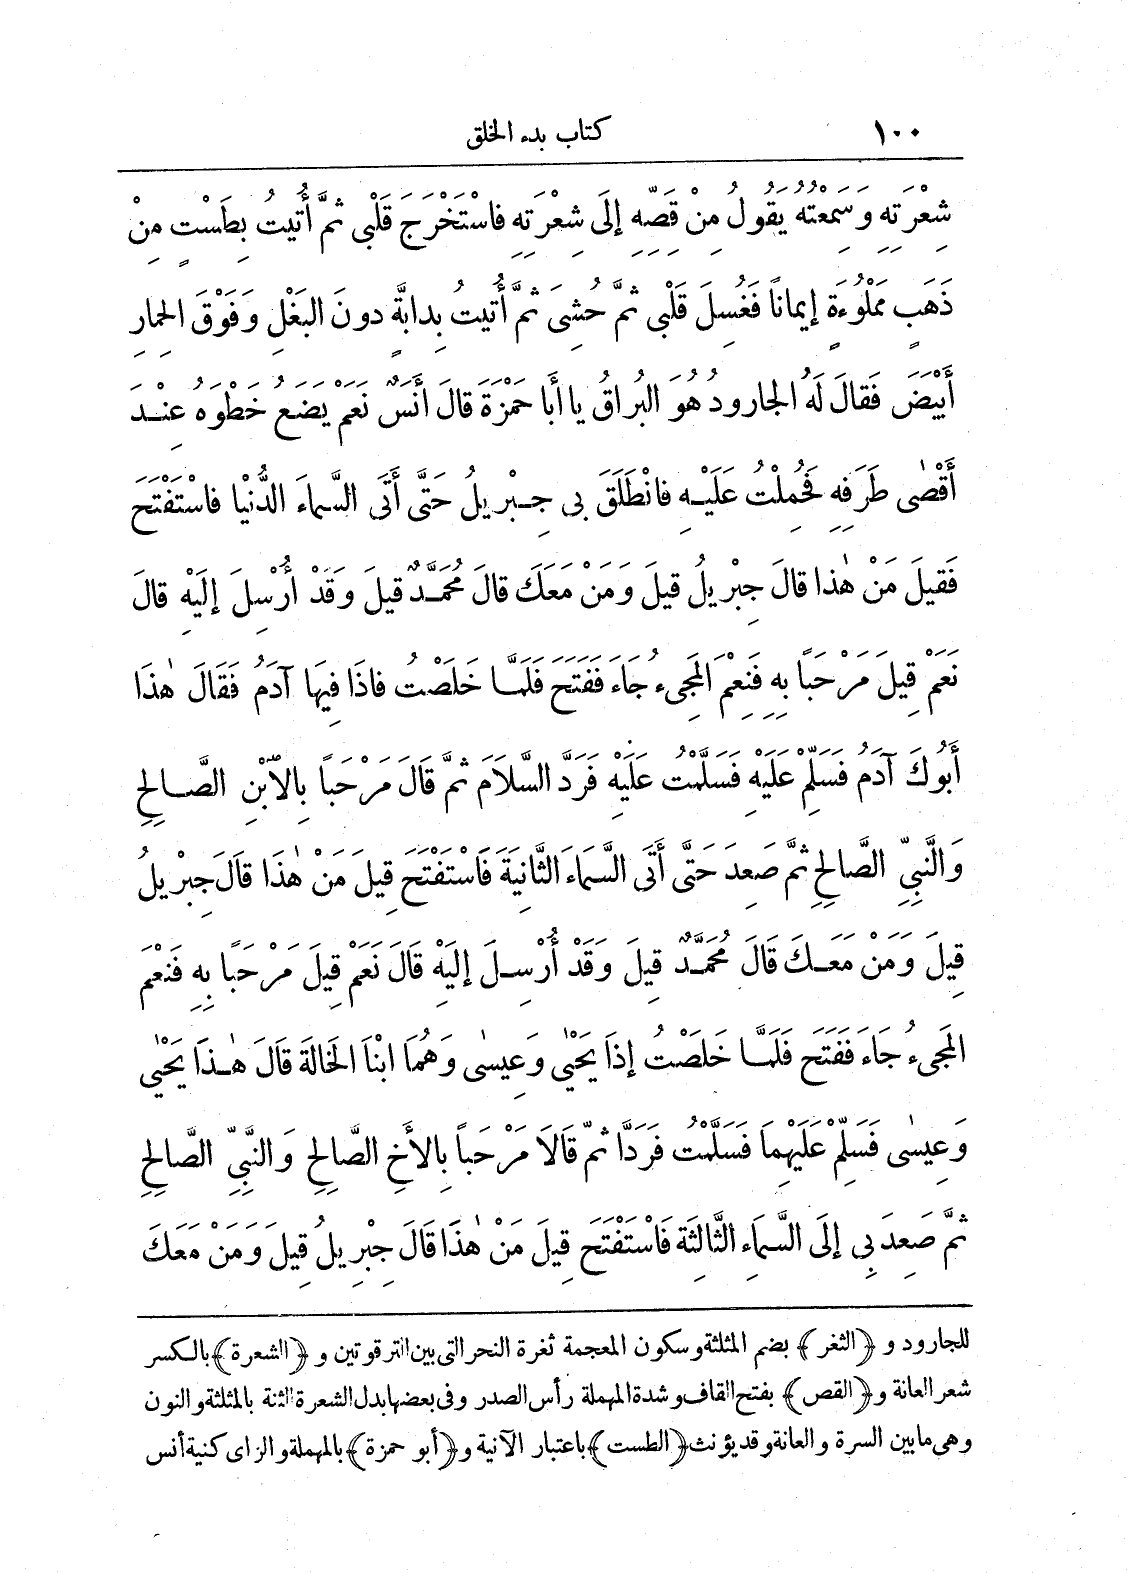 ١٠٠ كتاب بدء الخلق
شِعْرَتِهِ وَسَمِعْتُهُ يَقُولُ مِنْ قَصِّهِ إِلَى شِعْرَتِهِ فاسْتَخْرَجَ قَلْبِى ثُمَّ أُتِيتُ بِطَسْتٍ مِنْ
ذَهَبٍ مَمْلُوءَةٍ إيمانًا فَغُسِلَ قَلْبِى ثُمَّ حُشِىَ ثُمَّ أُتِيتُ بِدابَّةٍ دونَ البَغْلِ وَفَوْقَ الحِمارِ
أَبْيَضَ فَقالَ لَهُ الجارودُ هُوَ البُراقُ يا أَبا حَمْزَةَ قالَ أَنَسٌ نَعَمْ يَضَعُ خَطْوَهُ عِنْدَ
أَقْصٰى طَرَفِهِ فَحُمِلْتُ عَلَيْهِ فانْطَلَقَ بِى جِبْرِيلُ حَتَّى أَتَى السَّماءَ الدُّنْيا فاسْتَفْتَحَ
فَقيلَ مَنْ هٰذا قالَ جِبْرِيلُ قيلَ وَمَنْ مَعَكَ قالَ مُحَمَّدٌ قيلَ وَقَدْ أُرْسِلَ إِلَيْهِ قالَ
نَعَمْ قِيلَ مَرْحَبًا بِهِ فَنِعْمَ المَجِىءُ جَاءَ فَفَتَحَ فَلَمَّا خَلَصْتُ فاذَا فِيهَا آدَمُ فَقَالَ هٰذَا
أَبُوكَ آدَمُ فَسَلِّمْ عَلَيْهِ فَسَلَّمْتُ عَلَيْهِ فَرَدَّ السَّلَامَ ثُمَّ قَالَ مَرْحَبًا بِالاْبْنِ الصَّالِحِ
وَالنَّبِىِّ الصَّالِحِ ثُمَّ صَعِدَ حَتَّى أَتَى السَّمَاءَ الثَّانِيَةَ فَاسْتَفْتَحَ قِيلَ مَنْ هٰذَا قَالَ جِبْرِيلُ
قِيلَ وَمَنْ مَعَكَ قَالَ مُحَمَّدٌ قِيلَ وَقَدْ أُرْسِلَ إِلَيْهِ قَالَ نَعَمْ قِيلَ مَرْحَبًا بِهِ فَنِعْمَ
المَجِىءُ جَاءَ فَفَتَحَ فَلَمَّا خَلَصْتُ إِذَا يَحْيٰى وَعِيسٰى وَهُمَا ابْنَا الخَالَةِ قَالَ هٰذَا يَحْيٰى
وَعِيسٰى فَسَلِّمْ عَلَيْهِمَا فَسَلَّمْتُ فَرَدَّا ثُمَّ قَالَا مَرْحَبًا بِالأَخِ الصَّالِحِ وَالنَّبِىِّ الصَّالِحِ
ثُمَّ صَعِدَ بِى إِلَى السَّمَاءِ الثَّالِثَةِ فَاسْتَفْتَحَ قِيلَ مَنْ هٰذَا قَالَ جِبْرِيلُ قِيلَ وَمَنْ مَعَكَ
للجارود و ﴿الثغر﴾ بضم المثلثة وسكون المعجمة ثغرة النحر التى بين الترقوتين و ﴿الشعرة﴾ بالكسر
شعر العانة و ﴿القص﴾ بفتح القاف وشدة المهملة رأس الصدر وفى بعضها بدل الشعرة الثنة بالمثلثة والنون
وهى مابين السرة والعانة وقديؤنث ﴿الطست﴾ باعتبار الآنية و ﴿أبو حمزة﴾ بالمهملة والزاى كنية أنس